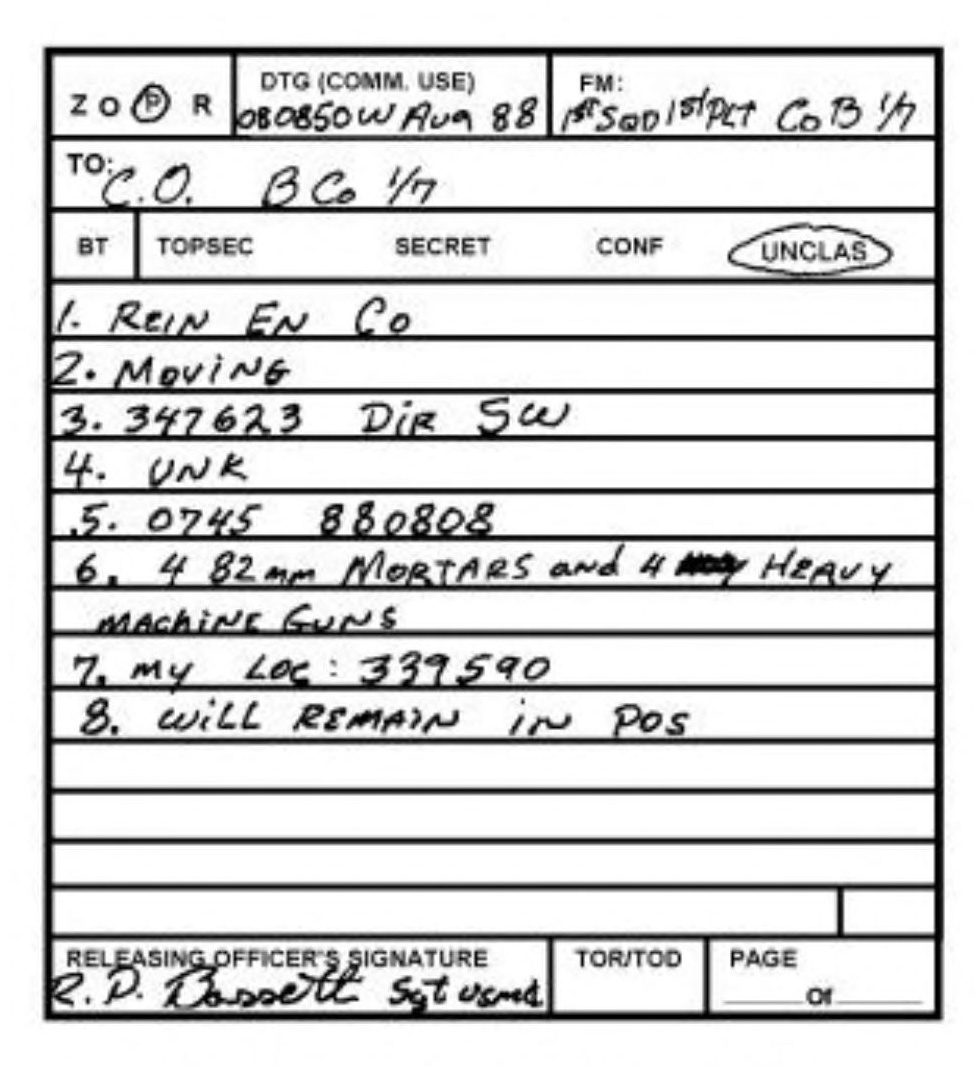 Z O P R
DTG (COMM. USE)
080850W Aug 88
FM:
1st SQD 1st PLT Co B 1/7
TO:
C.O. B Co 1/7
BT TOPSEC SECRET CONF UNCLAS
1. REIN EN Co
2. MOViNG
3. 347623 DiR SW
4. UNK
5. 0745 880808
6. 4 82mm MORTARS and 4 HEAVY
MACHiNE GUNS
7. my LOC: 339590
8. WiLL REMAIN iN POS
RELEASING OFFICER'S SIGNATURE
R. D. Bassett Sgt usmc
TOR/TOD
PAGE
Of